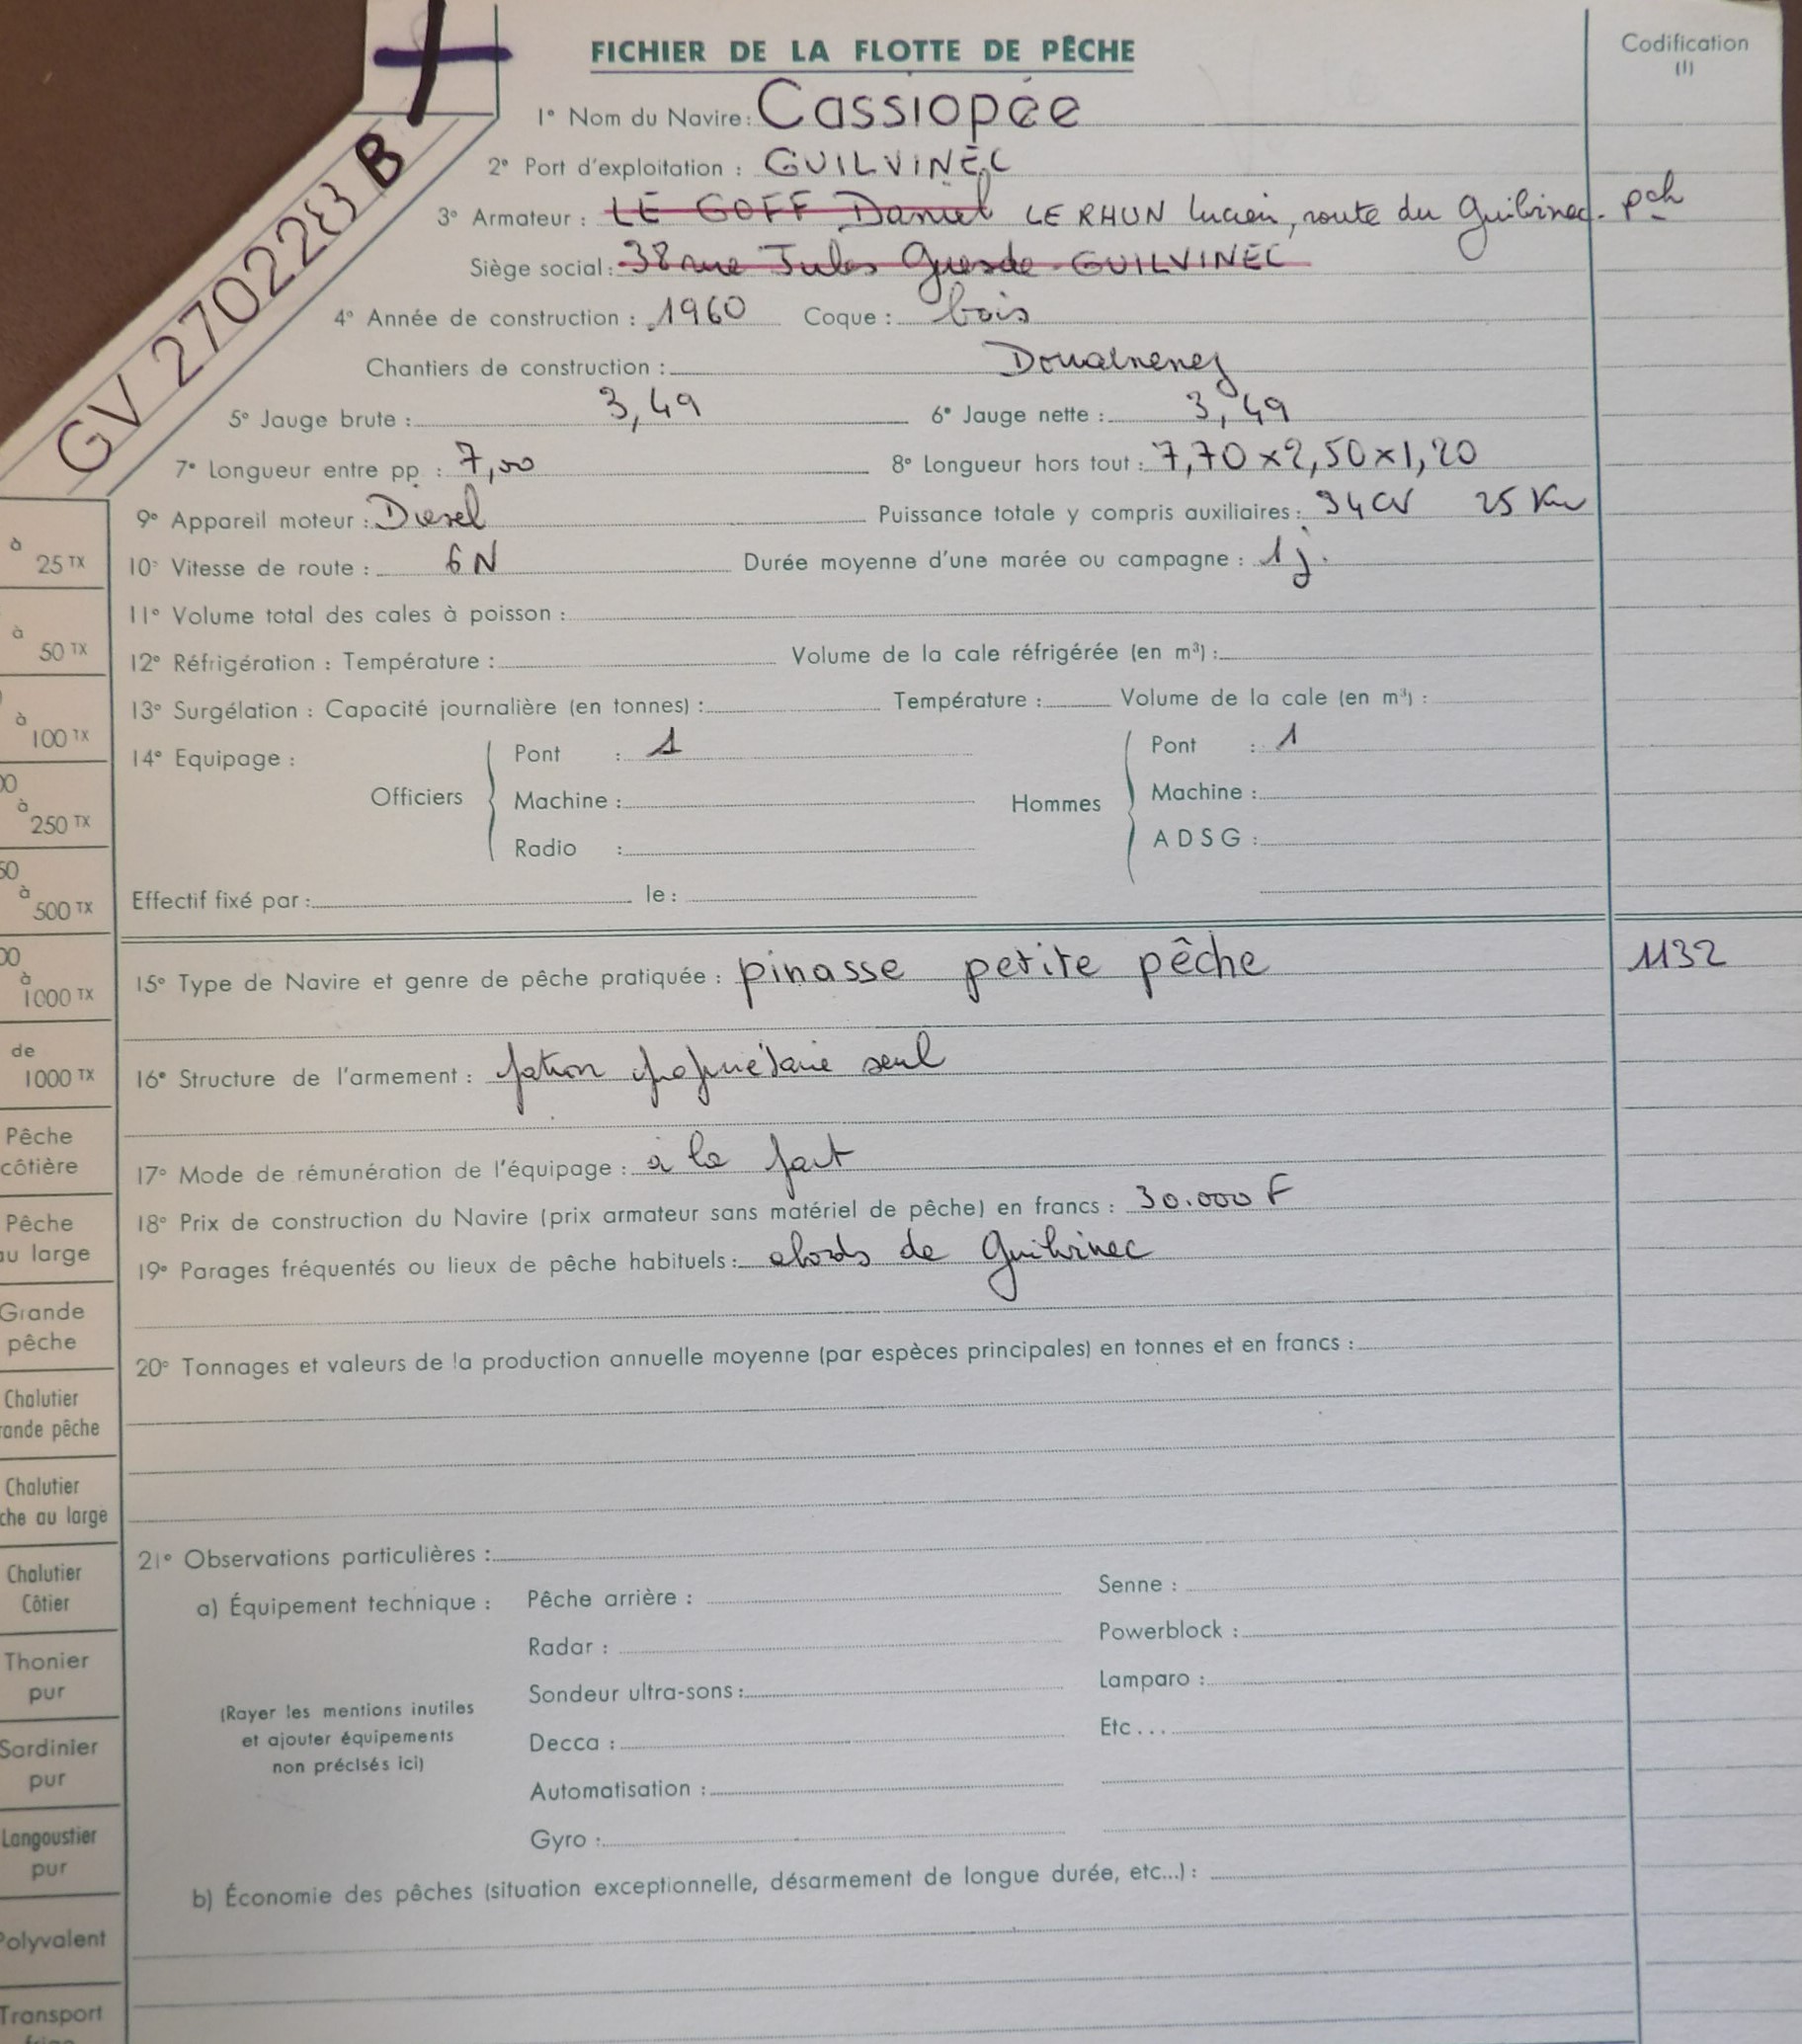 FICHIER DE LA FLOTTE DE PÊCHE
Codification
(1)
GV 270228 B
1° Nom du Navire : Cassiopée
2° Port d'exploitation : GUILVINEC
3° Armateur : LE GOFF Daniel LE RHUN Lucien, route du Guilvinec. Pch
Siège social : 38 rue Jules Guesde GUILVINEC
4° Année de construction : 1960 Coque : bois
Chantiers de construction : Douarnenez
5° Jauge brute : 3,49 6° Jauge nette : 3,49
7° Longueur entre pp : 7,00 8° Longueur hors tout : 7,70 x 2,50 x 1,20
9° Appareil moteur : Diesel Puissance totale y compris auxiliaires : 34 CV 25 Kw
10° Vitesse de route : 6 N Durée moyenne d'une marée ou campagne : 1 j.
11° Volume total des cales à poisson :
12° Réfrigération : Température : Volume de la cale réfrigérée (en m³) :
13° Surgélation : Capacité journalière (en tonnes) : Température : Volume de la cale (en m³) :
14° Equipage :
Officiers
Pont : 1
Machine :
Radio :
Hommes
Pont : 1
Machine :
A D S G :
Effectif fixé par : le :
15° Type de Navire et genre de pêche pratiquée : pinasse petite pêche 1132
16° Structure de l'armement : patron propriétaire seul
17° Mode de rémunération de l'équipage : à la part
18° Prix de construction du Navire (prix armateur sans matériel de pêche) en francs : 30.000 F
19° Parages fréquentés ou lieux de pêche habituels : abords de Guilvinec
20° Tonnages et valeurs de la production annuelle moyenne (par espèces principales) en tonnes et en francs :
21° Observations particulières :
a) Équipement technique :
(Rayer les mentions inutiles
et ajouter équipements
non précisés ici)
Pêche arrière :
Radar :
Sondeur ultra-sons :
Decca :
Automatisation :
Gyro :
Senne :
Powerblock :
Lamparo :
Etc...
b) Économie des pêches (situation exceptionnelle, désarmement de longue durée, etc...) :
à
25 TX
à
50 TX
à
100 TX
à
250 TX
à
500 TX
à
1000 TX
de
1000 TX
Pêche
côtière
Pêche
au large
Grande
pêche
Chalutier
rande pêche
Chalutier
che au large
Chalutier
Côtier
Thonier
pur
Sardinier
pur
Langoustier
pur
Polyvalent
Transport